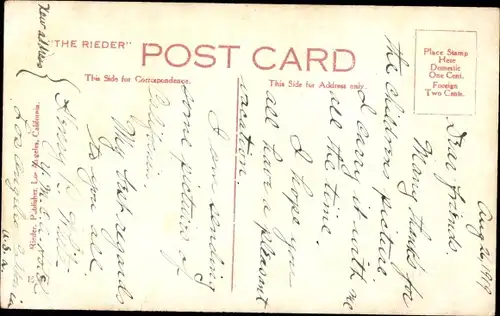 "THE RIEDER"
POST CARD
This Side for Correspondence.
This Side for Address only.
Place Stamp
Here
Domestic
One Cent.
Foreign
Two Cents.
Rieder, Publisher, Los Angeles, California.
Aug 26, 1919
Dear friends
Many thanks for
the childrens picture
I carry it with me
all the time.
I hope you
all have a pleasant
vacation.
I am sending
some pictures of
California.
My best regards
to you all
Henry R.
Y.M.C.A.
Los Angeles California
U.S.A.
New address